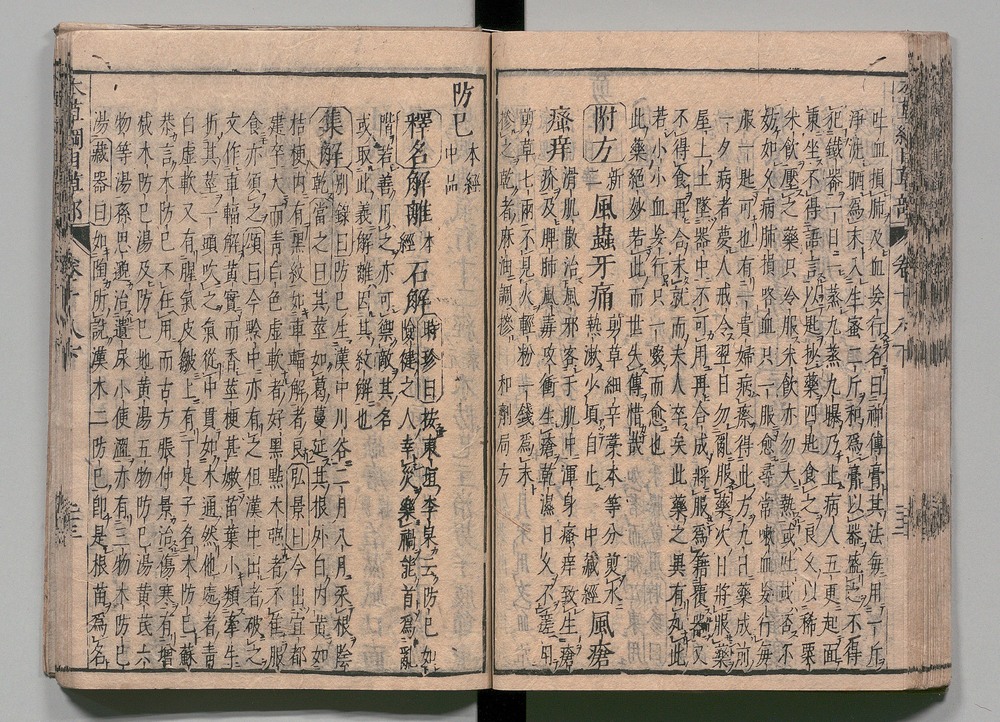 吐血損肺及血妄行名曰神傳膏其法每用一斤
淨洗晒爲末入生蜜二斤和爲膏以器盛之不得
犯鐵器一日一蒸九蒸九曝乃止病人五更起面
東坐不得語言以匙抄藥四匙食之良久以稀粟
米飲壓之藥只冷服米飲亦勿大熱或吐或否不
妨如久病肺損咯血只一服愈尋常嗽血妄行每
服一匙可也有一貴婦病瘵得此方九日藥成前
一夕病者夢人戒令翌日勿亂服藥次日將服藥
屋上土墜器中不可用再合成將服爲猫覆又
不得食再合未就而夫人卒矣此藥之異有如此
若小小血妄行只一啜而愈也
此藥絕妙若此而世失傳惜哉
附方 新二 風蟲牙痛 剪草細辛藁本等分煎水熱漱少頃自止 中藏經 風瘡
瘙痒 滑肌散治風邪客于肌中渾身瘙痒致生瘡疥及脾肺風毒攻衝生瘡乾濕日久不瘥用
剪草七兩不見火輕粉一錢爲末
摻之乾者麻油調摻 和劑局方
防己 本經中品
釋名 解離 本經 石解 時珍曰按東垣李杲云防己如
險健之人幸災樂禍能首爲亂
階若善用之亦可禦敵其名
或取此義解離因其紋解也
集解 別錄曰防己生漢中川谷二月八月采根陰
乾當之曰其莖如葛蔓延其根外白內黃如
桔梗內有黑紋如車輻解者良弘景曰今出宜都
建平大而青白色虛軟者好黑點木强者不佳服
食亦須之頌曰今黔中亦有之但漢中出者破之
文作車輻解黃實而香莖梗甚嫩苗葉小類牽牛
折其莖一頭吹之氣從中貫如木通然他處者青
白虛軟又有腥氣皮皺上有丁足子名木防己蘇
恭言木防己不任用而古方張仲景治傷寒有增
減木防己湯及防己地黃湯五物防己湯黃芪六
物等湯孫思邈治遺尿小便澀亦有三物木防己
湯藏器曰如陶所說漢木二防己卽是根苗爲名